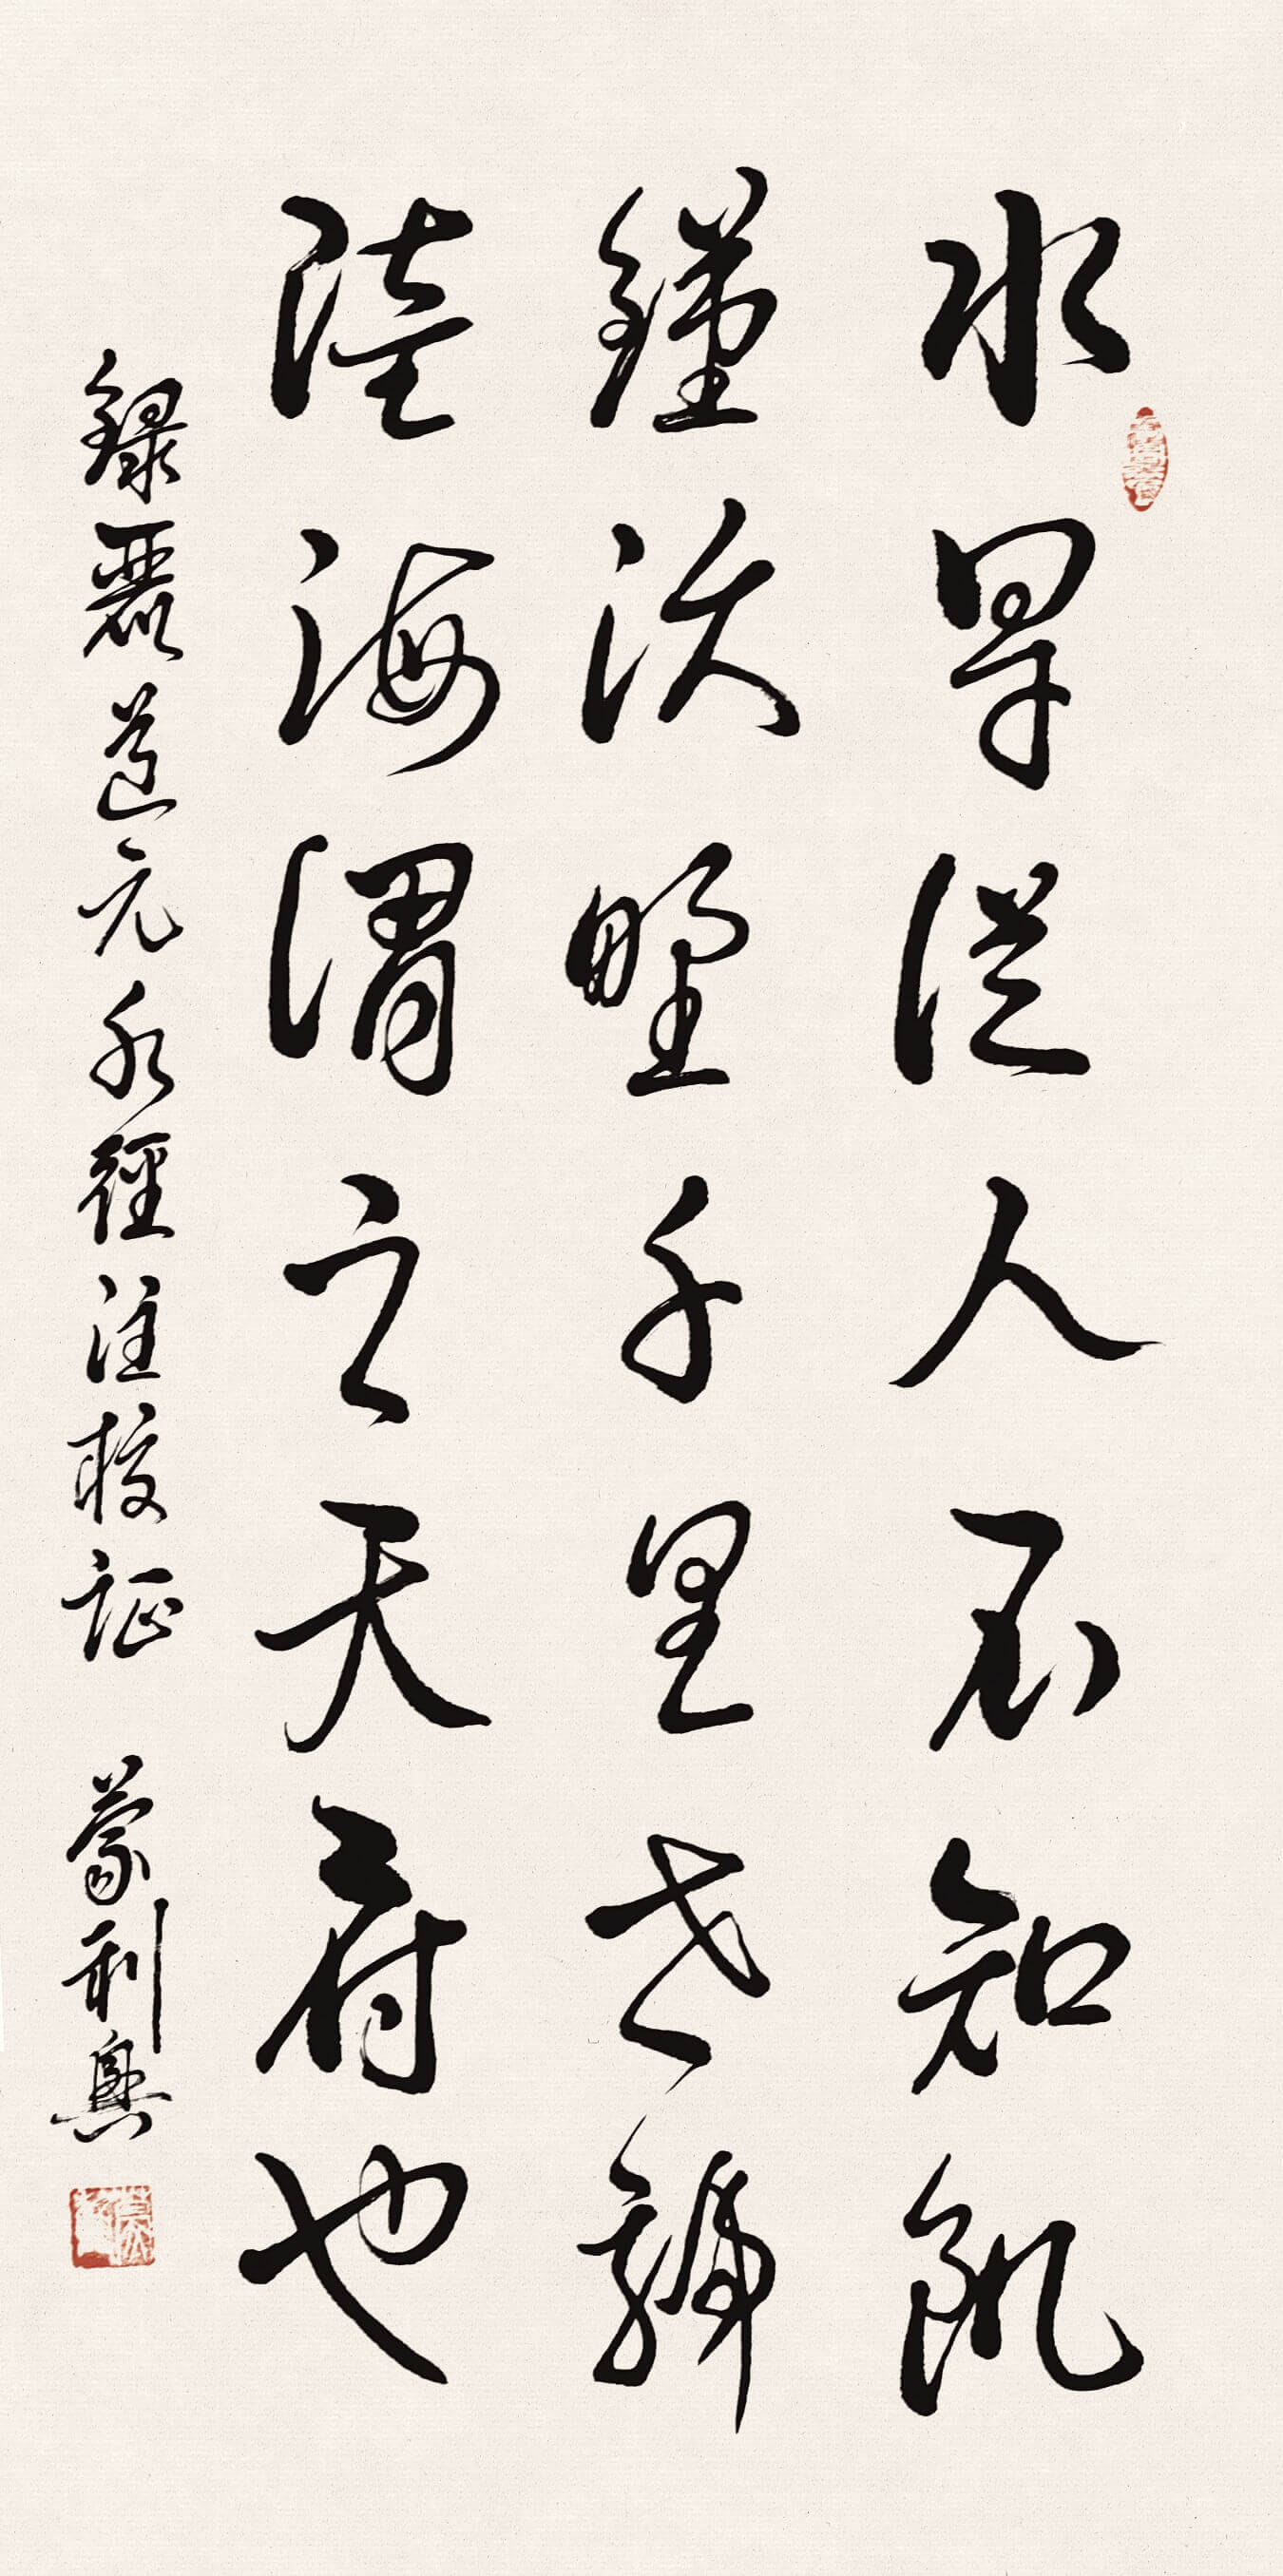 水旱從人不知飢
饉沃野千里世號
陸海謂之天府也
錄酈道元水經注校証 蒙利興